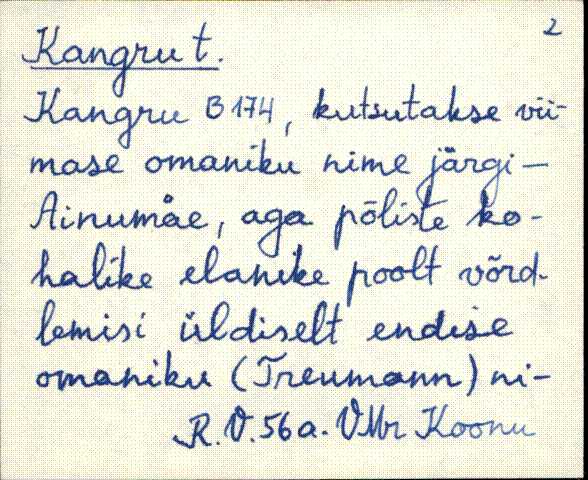 2
Kangru t.
Kangru B 174, kutsutakse vii-
mase omaniku nime järgi –
Ainumäe, aga põliste ko-
halike elanike poolt võrd-
lemisi üldiselt endise
omaniku (Treumann) ni-
R.V. 56 a. VMr Koonu